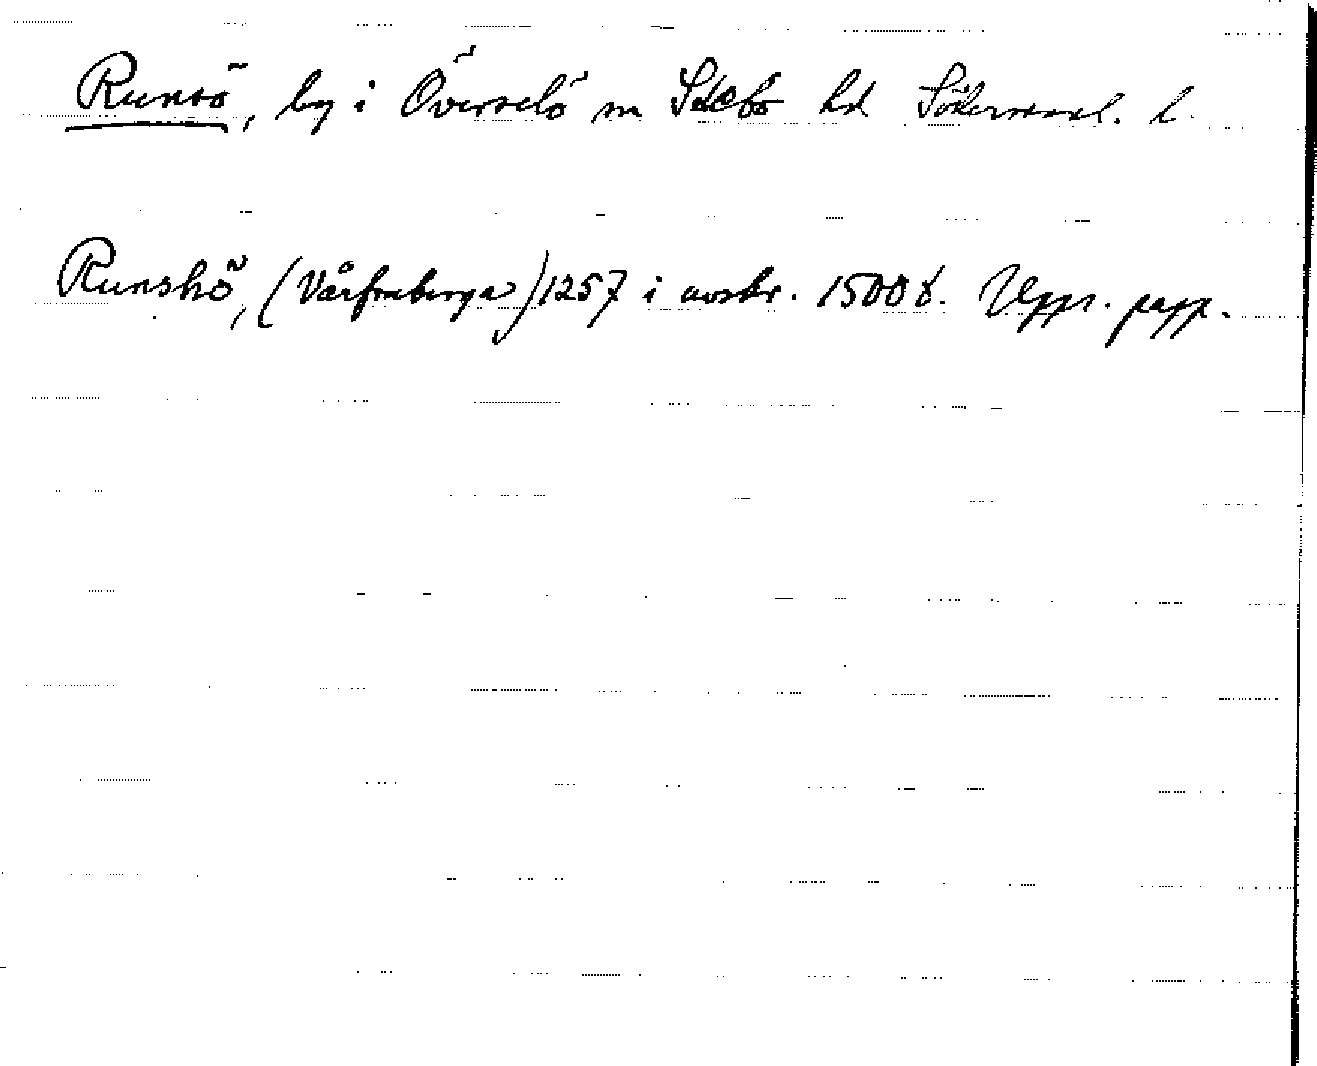 Runsö, by i Överselö sn Selebo hd Södermanl. l.
Runshö, (Vårfruberga) 1257 i avskr. 1500 t. Upps. papp.